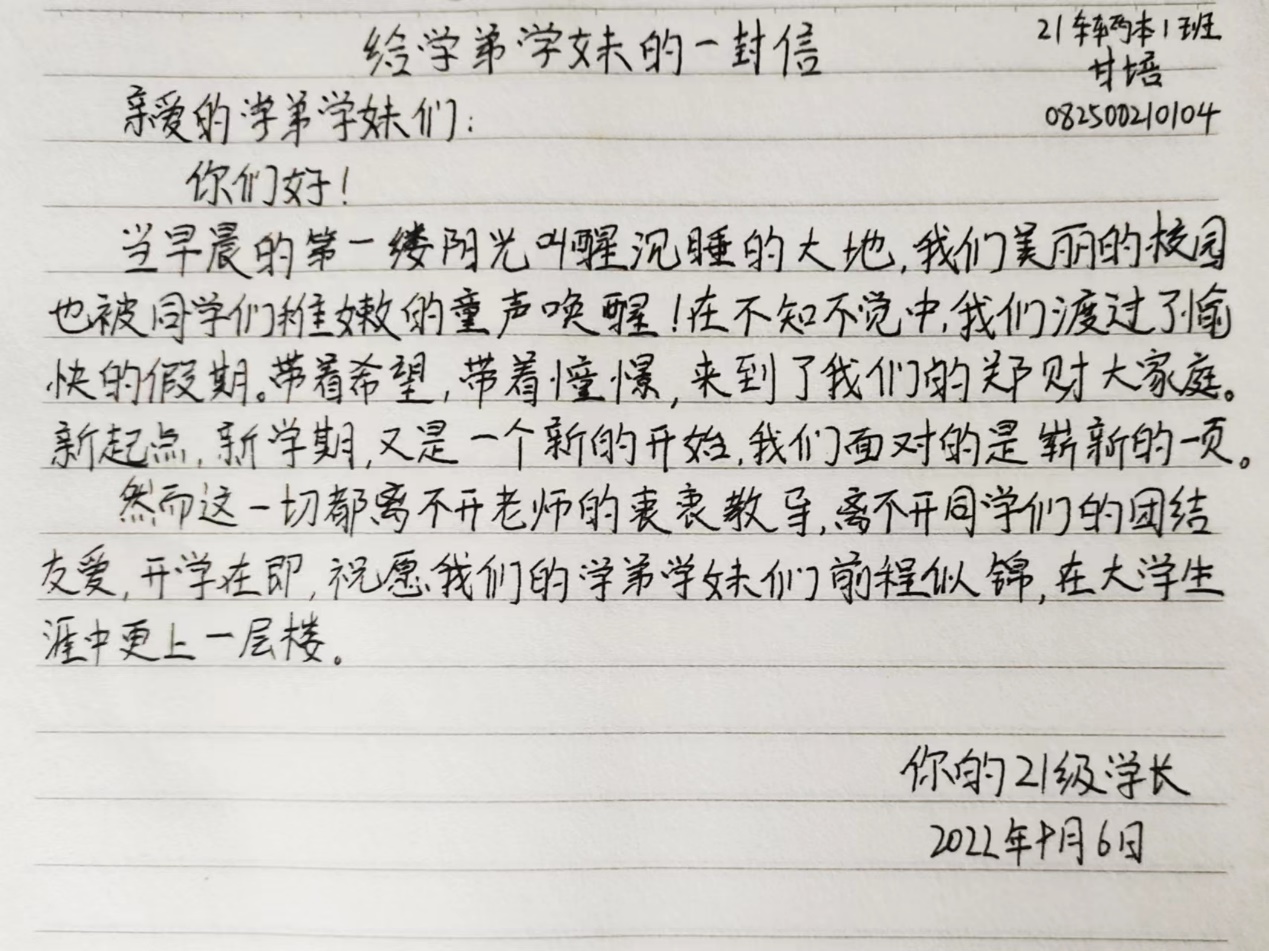 给学弟学妹的一封信
21车辆本1班
甘培
082500210104
亲爱的学弟学妹们:
你们好!
当早晨的第一缕阳光叫醒沉睡的大地,我们美丽的校园
也被同学们稚嫩的童声唤醒!在不知不觉中,我们渡过了愉
快的假期。带着希望,带着憧憬,来到了我们的郑财大家庭。
新起点,新学期,又是一个新的开始,我们面对的是崭新的一页。
然而这一切都离不开老师的衷衷教导,离不开同学们的团结
友爱,开学在即,祝愿我们的学弟学妹们前程似锦,在大学生
涯中更上一层楼。
你的21级学长
2022年十月6日